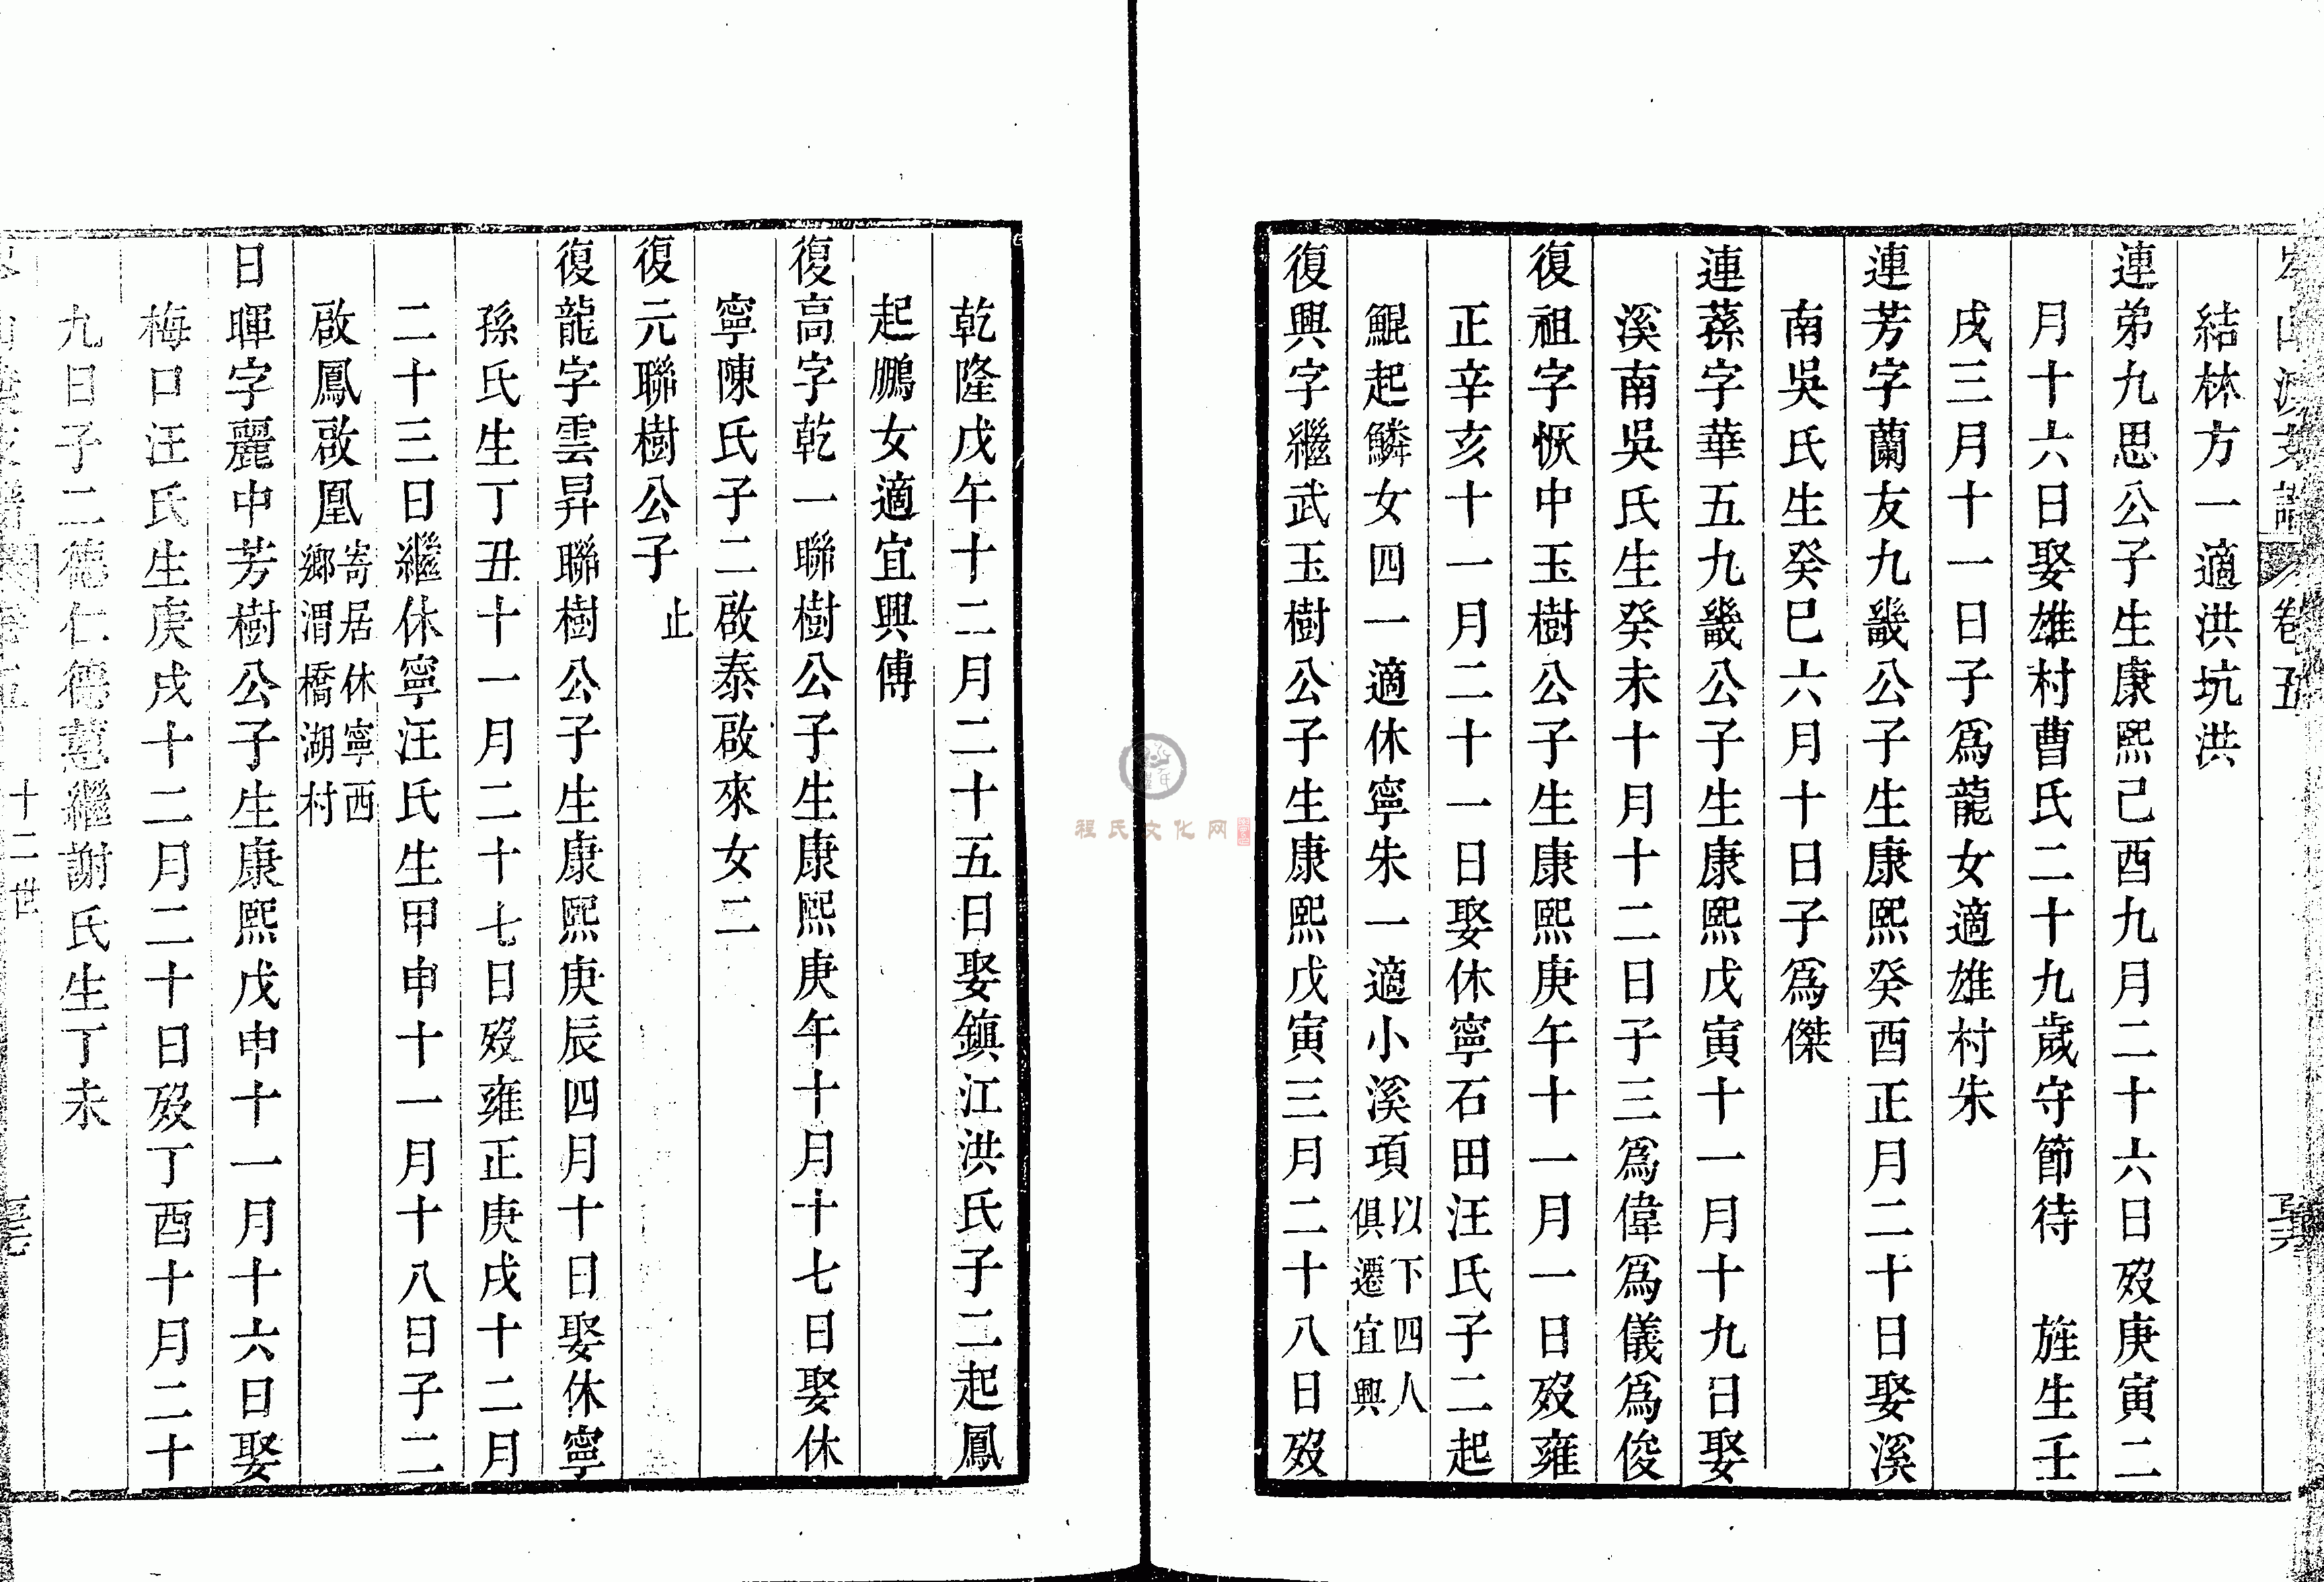 卷五
結林方一適洪坑洪
連弟九思公子生康熙己酉九月二十六日歿庚寅二
月十六日娶雄村曹氏二十九歲守節待　旌生壬
戌三月十一日子爲龍女適雄村朱
連芳字蘭友九畿公子生康熙癸酉正月二十日娶溪
南吳氏生癸巳六月十日子爲傑
連蓀字華五九畿公子生康熙戊寅十一月十九日娶
溪南吳氏生癸未十月十二日子三爲偉爲儀爲俊
復祖字恢中玉樹公子生康熙庚午十一月一日歿雍
正辛亥十一月二十一日娶休寧石田汪氏子二起
鯤起鱗女四一適休寧朱一適小溪項以下四人俱遷宜興
復興字繼武玉樹公子生康熙戊寅三月二十八日歿
乾隆戊午十二月二十五日娶鎮江洪氏子二起鳳
起鵬女適宜興傅
復高字乾一聯樹公子生康熙庚午十月十七日娶休
寧陳氏子二啟泰啟來女二
復元聯樹公子　止
復龍字雲昇聯樹公子生康熙庚辰四月十日娶休寧
孫氏生丁丑十一月二十七日歿雍正庚戌十二月
二十三日繼休寧汪氏生甲申十一月十八日子二
啟鳳啟凰寄居休寧西鄉渭橋湖村
日暉字麗中芳樹公子生康熙戊申十一月十六日娶
梅口汪氏生庚戌十二月二十日歿丁酉十月二十
九日子二德仁德慧繼謝氏生丁未
十二世
程氏文化网